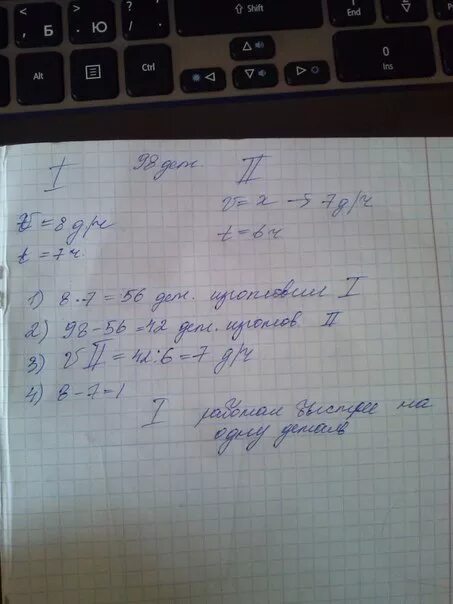 < , Б
> . Ю
? / .
⇧ Shift
1 End
Alt
Ctrl
0 Ins
I 98 дет. II
v = 8 д/ч v = x → 7 д/ч
t = 7 ч. t = 6 ч.
1) 8 · 7 = 56 дет. изготовил I
2) 98 - 56 = 42 дет. изготов II
3) v II = 42 : 6 = 7 д/ч
4) 8 - 7 = 1
I работал быстрее на
одну деталь